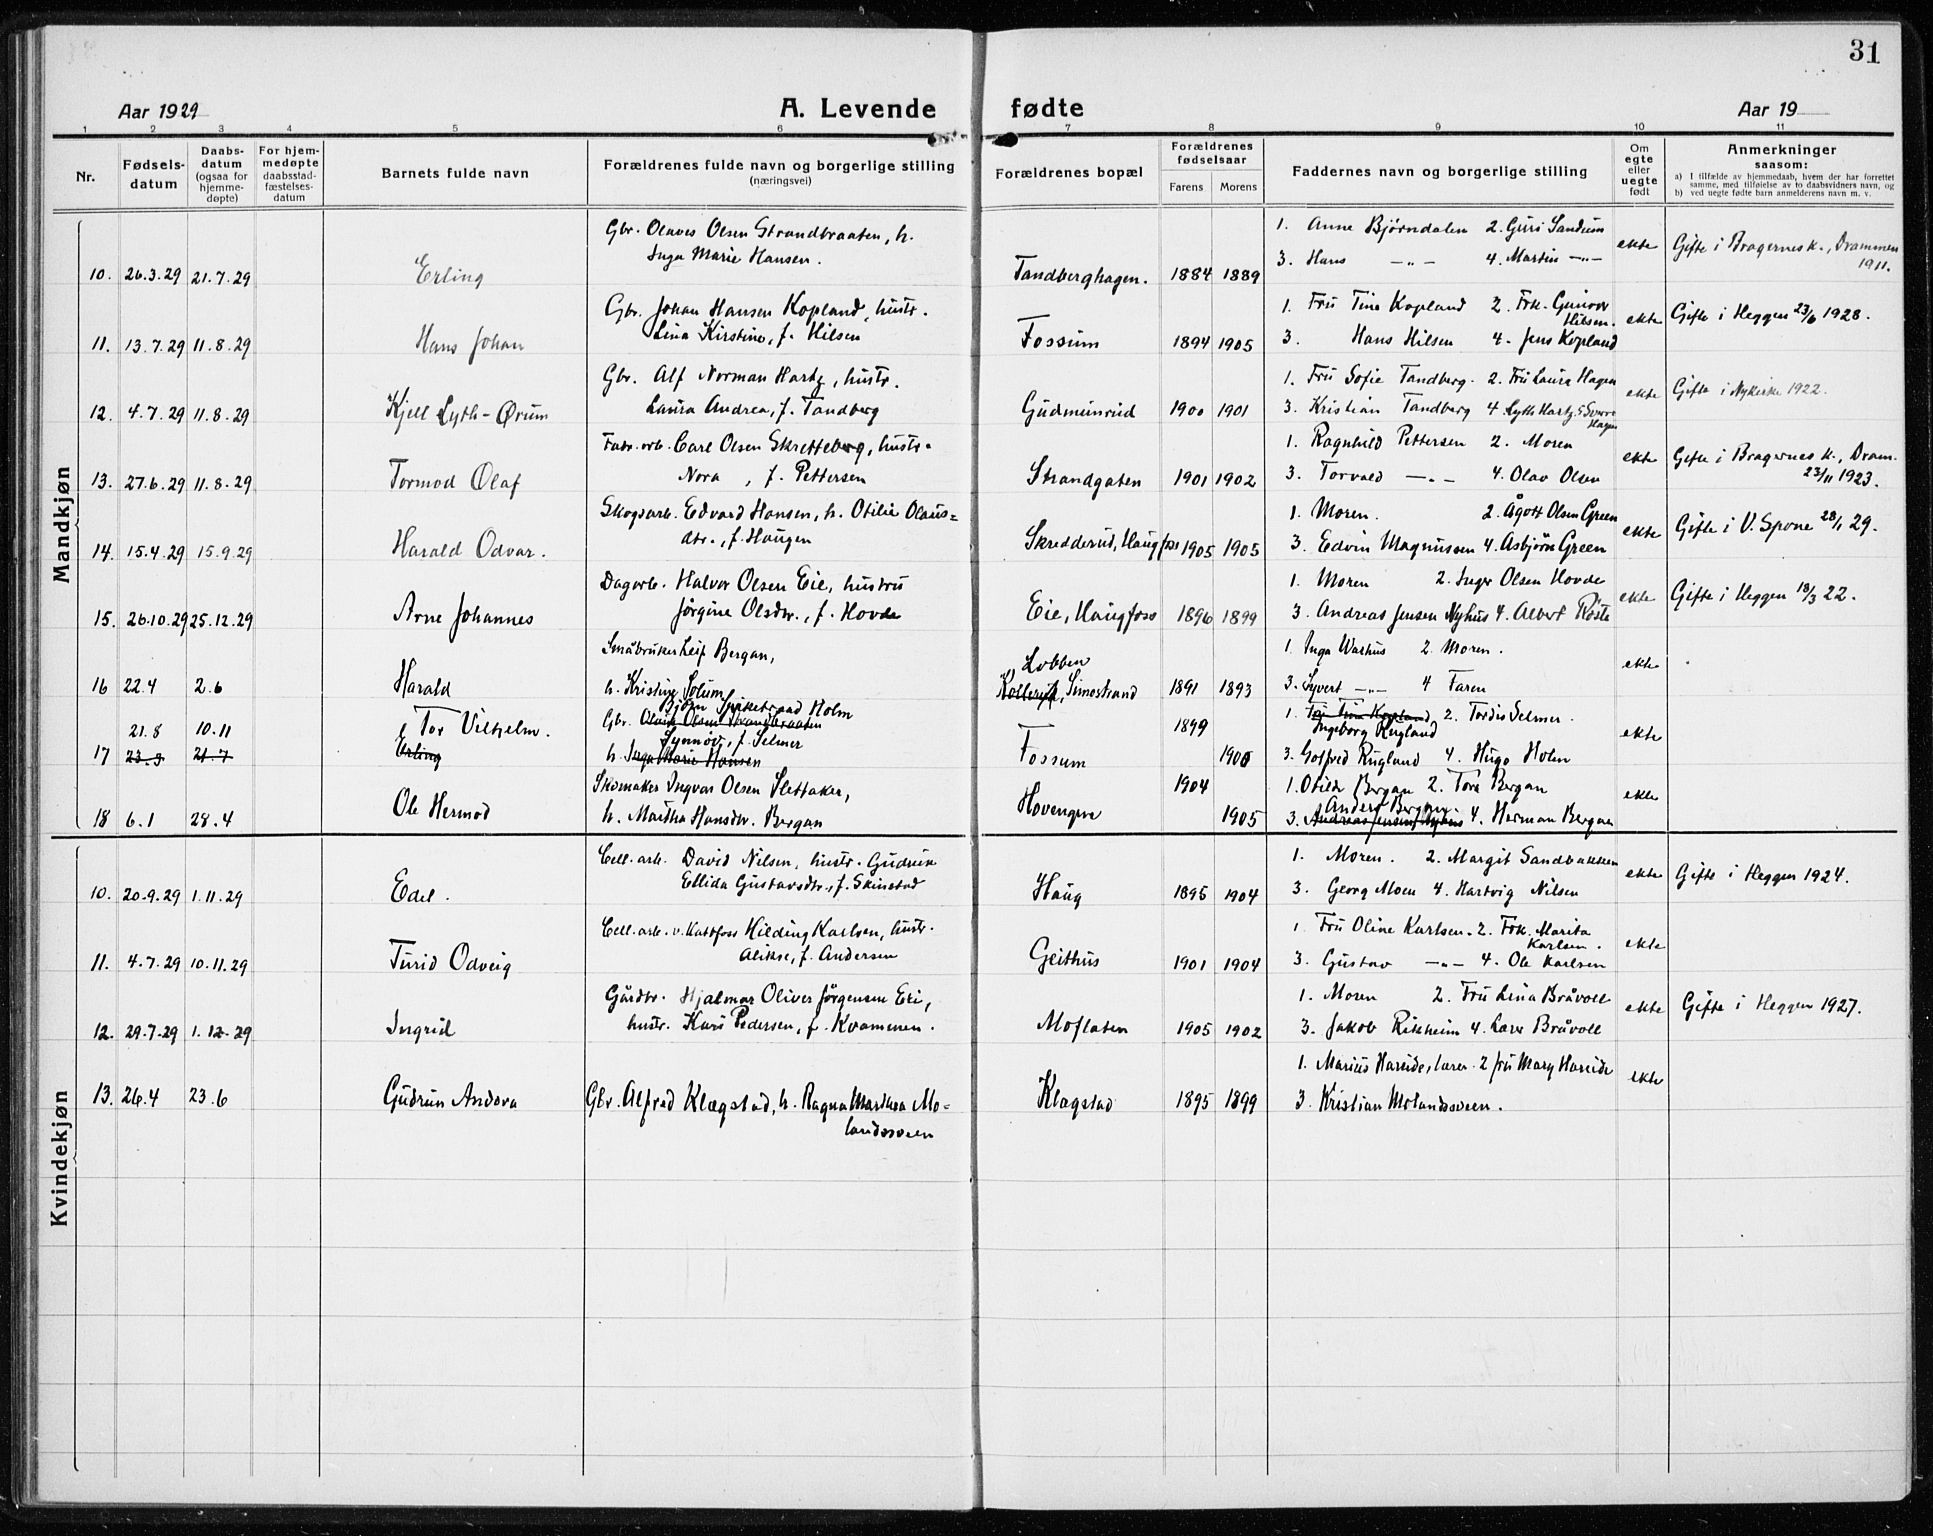 31
Aar 1929 A. Levende fødte Aar 19
1 2 3 4 5 6 7 8 9 10 11
Nr. Fødsels-datum Daabs-datum (ogsaa for hjemme-døpte) For hjem-medøpte daabsstad-fæstelses-datum Barnets fulde navn Forældrenes fulde navn og borgerlige stilling (næringsvei) Forældrenes bopæl Forældrenes fødselsaar Farens Morens Faddernes navn og borgerlige stilling Om egte eller uegte født Anmerkninger saasom:
a) I tilfælde av hjemmedaab, hvem der har forrettet samme, med tilføielse av to daabsvidners navn, og
b) ved uegte fødte barn anmelderens navn m. v.
Mandkjøn
Gbr. Olaves Olsen Strandbraaten, h. 1. Anne Bjørndalen 2. Guri Sandum
10. 26.3.29 21.7.29 Erling Inga Marie Hansen. Tandberghagen. 1884 1889 3. Hans -"- 4. Martin -"- ekte Gifte i Bragernes k., Drammen 1911.
Gbr. Johan Hansen Kopland, hustr. 1. Fru Tina Kopland 2. Frk. Gunvor Hilsen.
11. 13.7.29 11.8.29 Hans Johan Lina Kirstine, f. Hilsen Fossum 1894 1905 3. Hans Hilsen 4. Jens Kopland ekte Gifte i Heggen 23/6 1928.
Gbr. Alf Norman Hartz, hustr. 1. Fru Sofie Tandberg. 2. Fru Laura Hagen
12. 4.7.29 11.8.29 Kjell Lyth-Ørum Laura Andrea, f. Tandberg Gudmunrud 1900 1901 3. Kristian Tandberg 4. Lyth Hartz. 5 Sverre Hagen ekte Gifte i Nykirke 1922.
Fabr. arb. Carl Olsen Skretteberg, hustr. 1. Ragnhild Pettersen 2. Moren
13. 27.6.29 11.8.29 Tormod Olaf Nora, f. Pettersen Strandgaten 1901 1902 3. Torvald -"- 4. Olav Olsen ekte Gifte i Bragernes k., Dram. 23/11 1923.
Skogsarb. Edvard Hansen, h. Otilie Olaus- 1. Moren. 2. Ågot Olsen Green
14. 15.4.29 15.9.29 Harald Odvar. dtr., f. Haugen Skredderud, Haugfoss 1905 1905 3. Edvin Magnussen 4. Asbjørn Green ekte Gifte i V. Spone 28/1 29.
Dagarb. Halvor Olsen Eie, hustru 1. Moren 2. Inger Olsen Hovde
15. 26.10.29 25.12.29 Arne Johannes Jørgine Olsdtr., f. Hovde Eie, Haugfoss 1896 1899 3. Andreas Jensen Nyhus 4. Albert Röste ekte Gifte i Heggen 18/3 22.
Småbruker Leif Bergan, Lobben 1. Inga Warhus 2. Moren. ekte
16 22.4 2.6 Harald h. Kristine Solum , Simostrand 1891 1893 3. Syvert -"- 4 Faren
Bjørn Holm
21.8 10.11 Tor Vilhelm. Gbr. Olaus Olsen Strandbraaten 1899 1. Fru Tina Kopland 2. Tordis Selmer.
Synnøv, f. Selmer Ingeborg Rugland
17 23.3 21.7 Erling h. Inga Marie Hansen Fossum 1900 3. Gotfred Rugland 4. Hugo Holm ekte
Skomaker Ingvar Olsen Slettaker, 1904 1. Otilde Bergan 2. Tora Bergan
Anders Bergan.
18 6.1 28.4 Ole Hermod h. Martha Hansdtr. Bergan Hovengen 1905 3. Andreas Jensen Nyhus 4. Herman Bergan ekte
Kvindekjøn
Cell. arb. David Nilsen, hustr. Gudrun 1. Moren. 2. Margit Sandbakken
10. 20.9.29 1.11.29 Edel. Ellida Gustavsdtr., f. Skinstad Haug 1895 1904 3. Georg Moen 4. Hartvig Nilsen ekte Gifte i Heggen 1924.
Cell. arb. v. Kattfoss Hilding Karlsen, hustr. 1. Fru Oline Karlsen. 2. Frk. Marita Karlsen.
11. 4.7.29 10.11.29 Turid Odveig Alikse, f. Andersen Geithus 1901 1904 3. Gustav -"- 4. Ole Karlsen ekte
Gårdbr. Hjalmar Oliver Jørgensen Eri, 1. Moren 2. Fru Lina Bråvoll
12. 29.7.29 1.12.29 Ingrid hustr. Kari Pedersen, f. Kvammen. Moflaten 1905 1902 3. Jakob Rikheim 4. Lars Bråvoll ekte Gifte i Heggen 1927.
1. Marius Hareide, lærer. 2 fru Mary Hareide
13. 26.4 23.6 Gudrun Andora Gbr. Alfred Klægstad, h. Ragna Marthea Mo- Klægstad 1895 1899 3. Kristian Molandssveen. ekte
landssveen